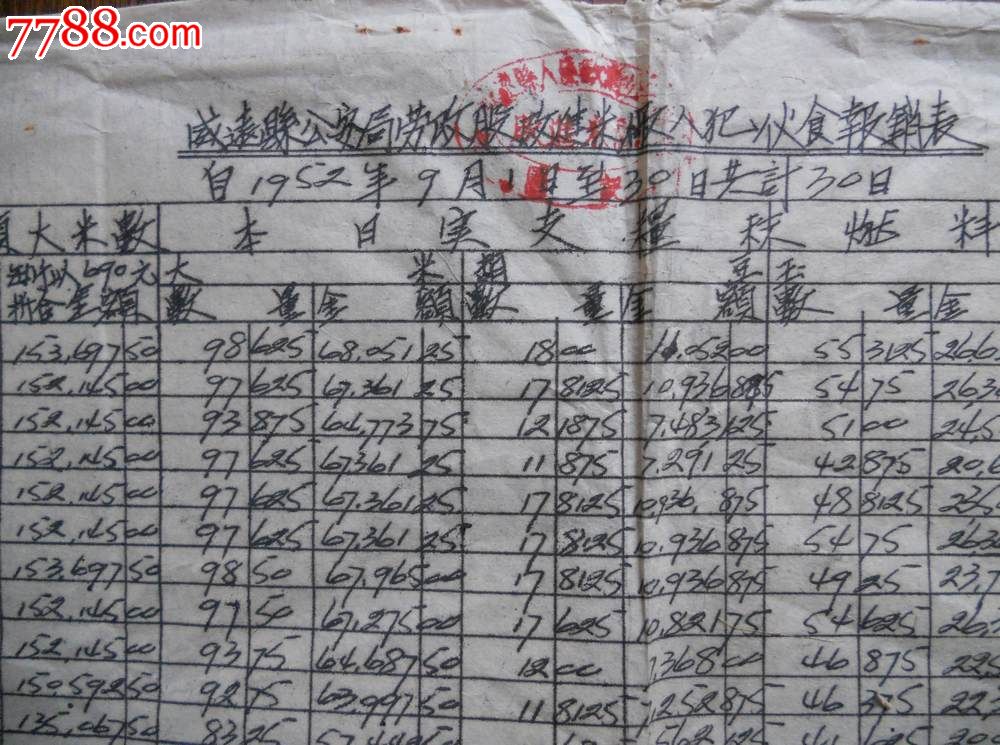 7788.com
威遠縣公安局劳改股改進米厰人犯伙食報銷表
自1952年9月1日至30日共計30日
大米數 本日実支糧秣燃料
690元 大米 胡豆 玉
折合金額 數量 金額 數量 金額 數量 金
153,697 50 98 625 68,051 25 18 00 11,052 00 55 3125
152,145 00 97 625 67,361 25 17 8125 10,936 875 54 75
152,145 00 93 875 64,773 75 12 1875 7,483 125 51 00
152,145 00 97 625 67,361 25 11 875 7,291 25 42 875
152,145 00 97 625 67,361 25 17 8125 10,936 875 48 8125
152,145 00 97 625 67,361 25 17 8125 10,936 875 54 75
153,697 50 98 50 67,965 00 17 8125 10,936 875 49 25 23,7
152,145 00 97 50 67,275 00 17 625 10,821 75 54 625
152,145 00 93 75 64,687 50 12 00 7,368 00 46 875
150,592 50 92 75 63,997 50 11 8125 7,252 875 46 375
135,067 50 83 25